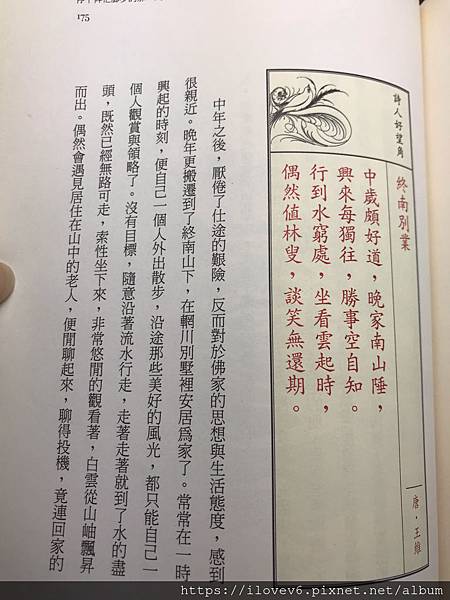 175
詩人好望角
終南別業
唐．王維
中歲頗好道，晚家南山陲，
興來每獨往，勝事空自知。
行到水窮處，坐看雲起時，
偶然值林叟，談笑無還期。
中年之後，厭倦了仕途的艱險，反而對於佛家的思想與生活態度，感到
很親近。晚年更搬遷到了終南山下，在輞川別墅裡安居為家了。常常在一時
興起的時刻，便自己一個人外出散步，沿途那些美好的風光，都只能自己一
個人觀賞與領略了。沒有目標，隨意沿著流水行走，走著走著就到了水的盡
頭，既然已經無路可走，索性坐下來，非常悠閒的觀看著，白雲從山岫飄昇
而出。偶然會遇見居住在山中的老人，便閒聊起來，聊得投機，竟連回家的
https://ilovev6.pixnet.net/album